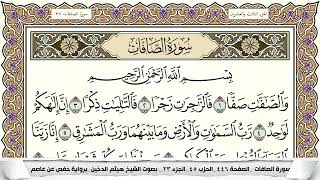 الجزء الثالث والعشرون
سُورَةُ الصَّافَّاتِ
بِسْمِ اللَّهِ الرَّحْمَٰنِ الرَّحِيمِ
وَالصَّٰٓفَّٰتِ صَفًّا ١ فَالزَّٰجِرَٰتِ زَجْرًا ٢ فَالتَّٰلِيَٰتِ ذِكْرًا ٣ إِنَّ إِلَٰهَكُمْ
لَوَٰحِدٌ ٤ رَّبُّ السَّمَٰوَٰتِ وَالْأَرْضِ وَمَا بَيْنَهُمَا وَرَبُّ الْمَشَٰرِقِ ٥ إِنَّا زَيَّنَّا
سورة الصافات الصفحة ٤٤٦ الحزب ٤٥ الجزء ٢٣ بصوت الشيخ هيثم الدخين برواية حفص عن عاصم